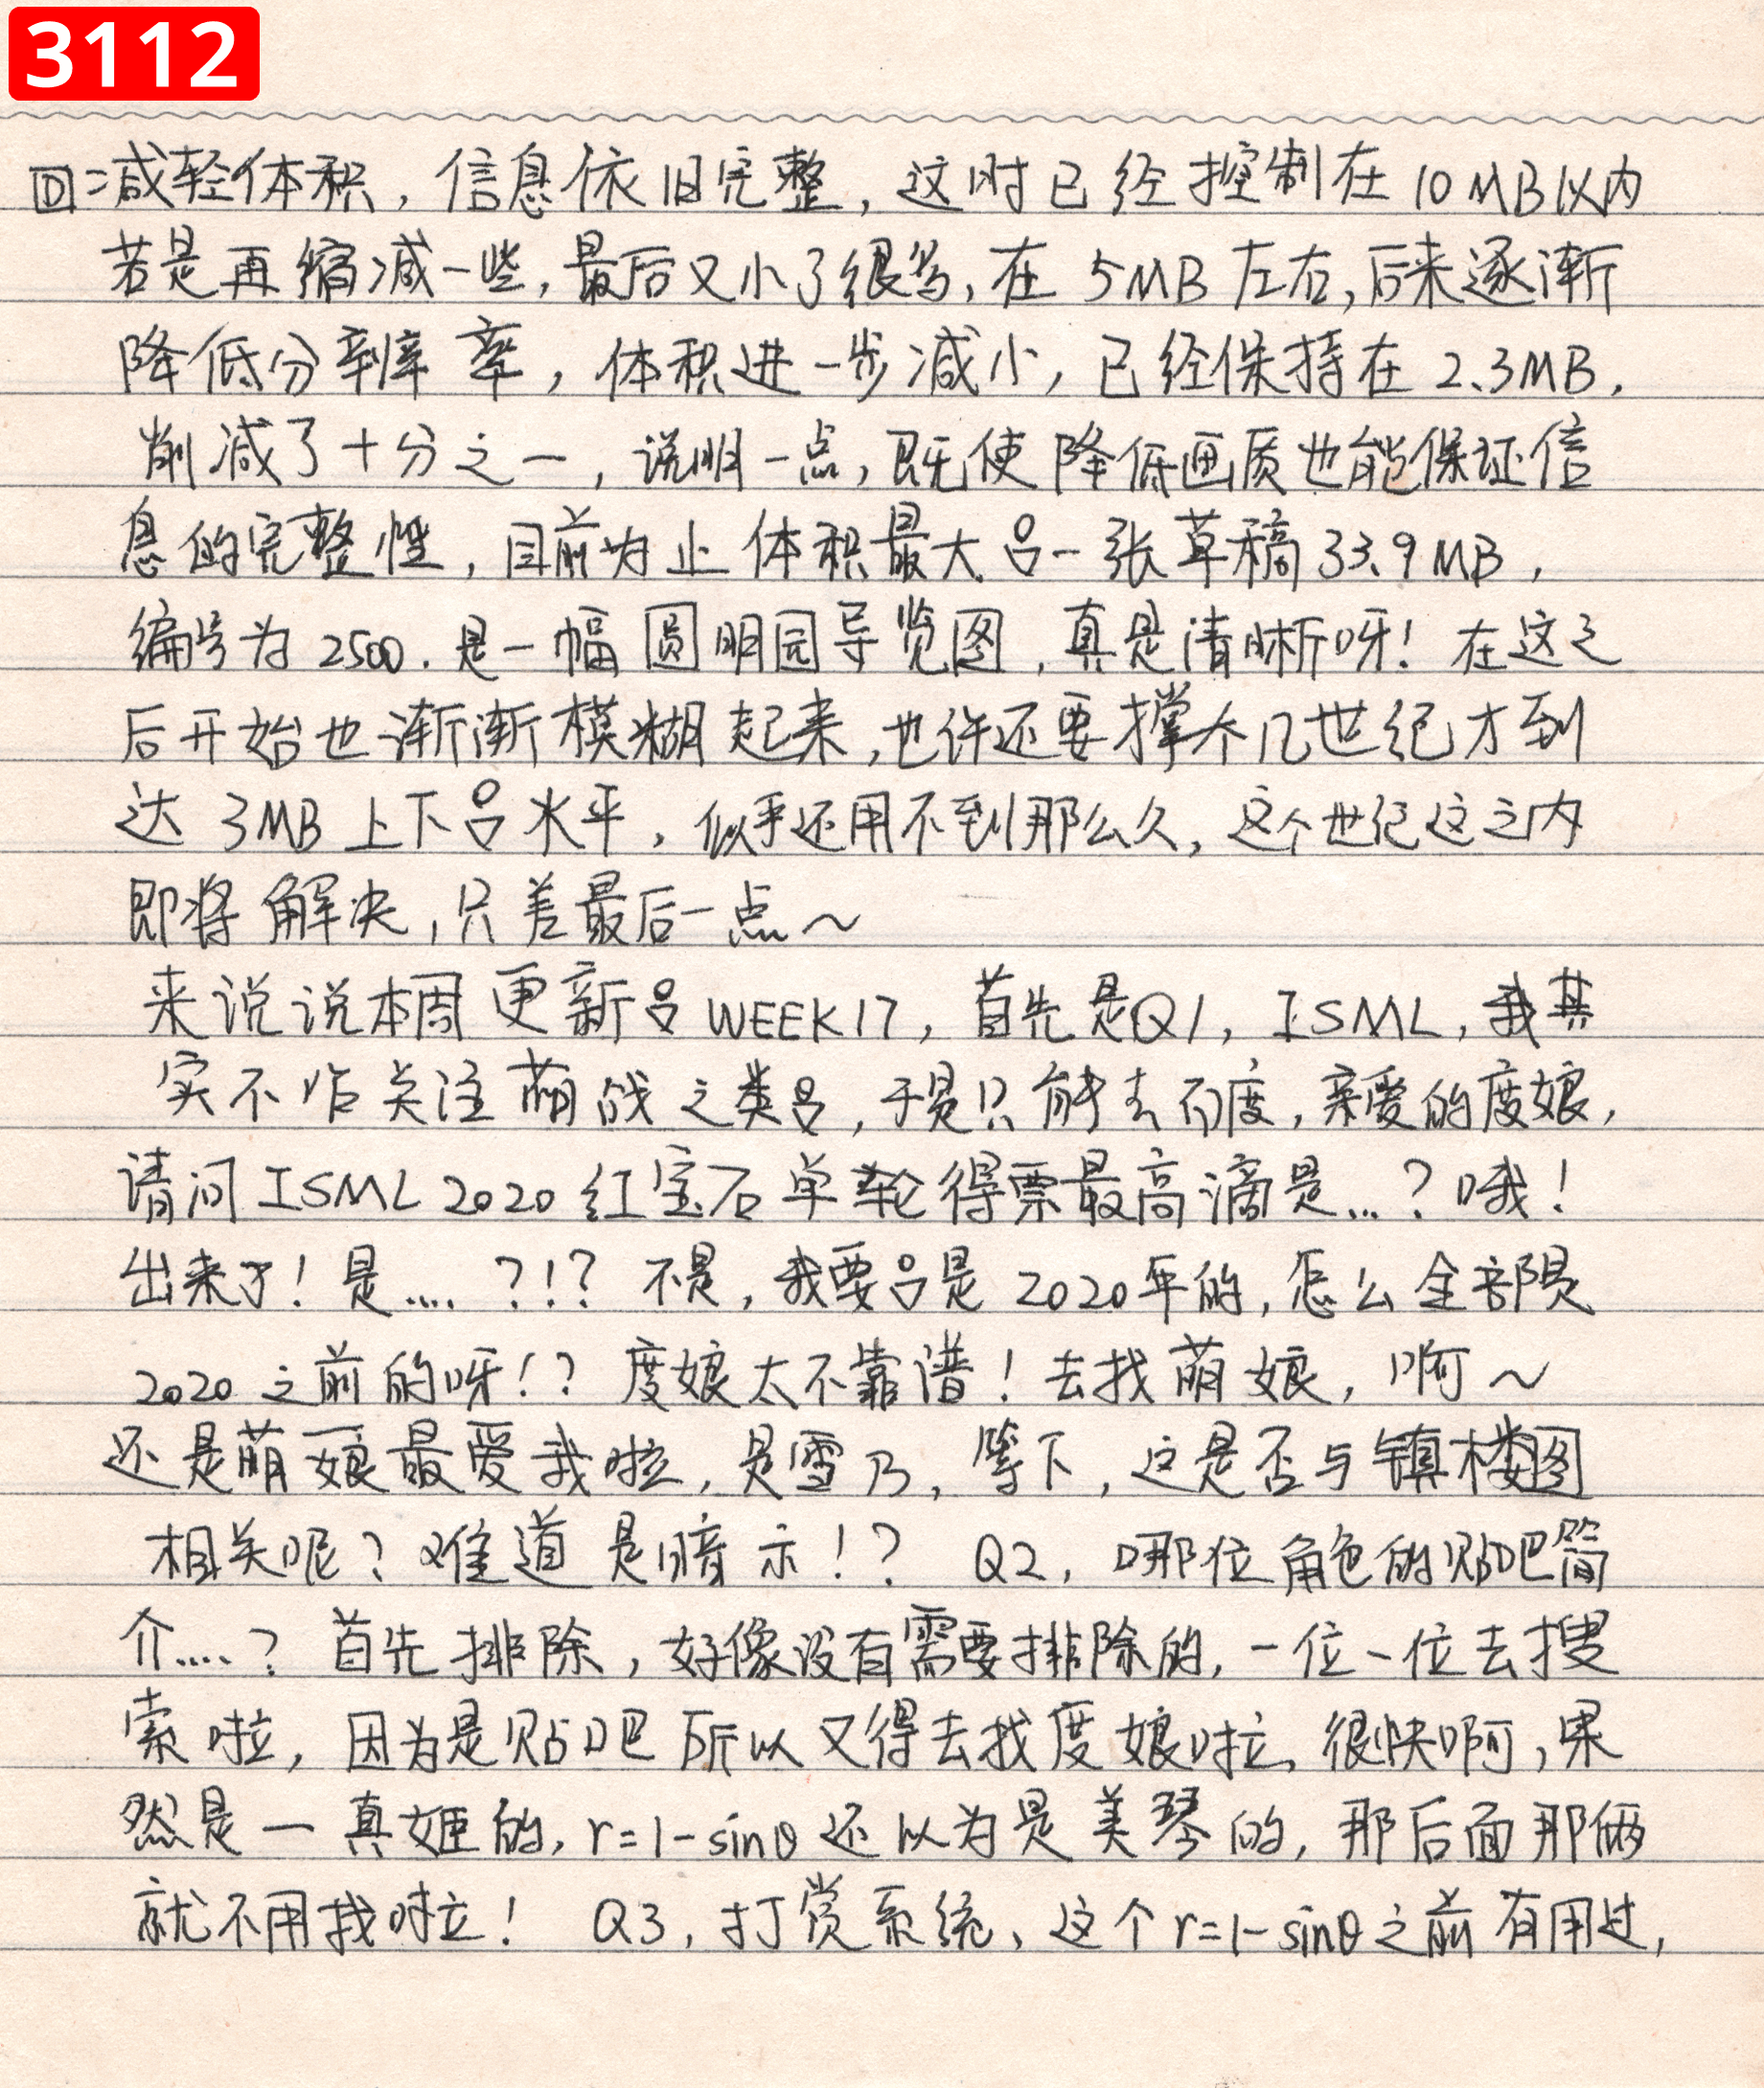 3112
回:减轻体积，信息依旧完整，这时已经控制在10MB以内
若是再缩减一些，最后又小了很多，在5MB左右，后来逐渐
降低分辨率，体积进一步减小，已经保持在2.3MB，
削减了十分之一，说明一点，既使降低画质也能保证信
息的完整性，目前为止体积最大吕一张草稿33.9MB，
编号为2500.是一幅圆明园导览图，真是清晰呀！在这之
后开始也渐渐模糊起来，也许还要撑个几世纪才到
达3MB上下吕水平，似乎还用不到那么久，这个世纪这之内
即将解决，只差最后一点～
来说说本周更新吕WEEK17，首先是Q1，ISML，我其
实不咋关注萌战之类吕，于是只能去百度，亲爱的度娘，
请问ISML2020红宝石单轮得票最高滴是...？哦！
出来了！是....？！？不是，我要吕是2020年的，怎么全部是
2020之前的呀！？度娘太不靠谱！去找萌娘，啊～
还是萌娘最爱我啦，是雪乃，等下，这是否与镇楼图
相关呢？难道是暗示！？ Q2，哪位角色的贴吧简
介....？首先排除，好像没有需要排除的，一位一位去搜
索啦，因为是贴吧所以又得去找度娘啦，很快啊，果
然是一真姬的，r=1-sinθ还以为是美琴的，那后面那俩
就不用找啦！ Q3，打赏系统、这个r=1-sinθ之前有用过，